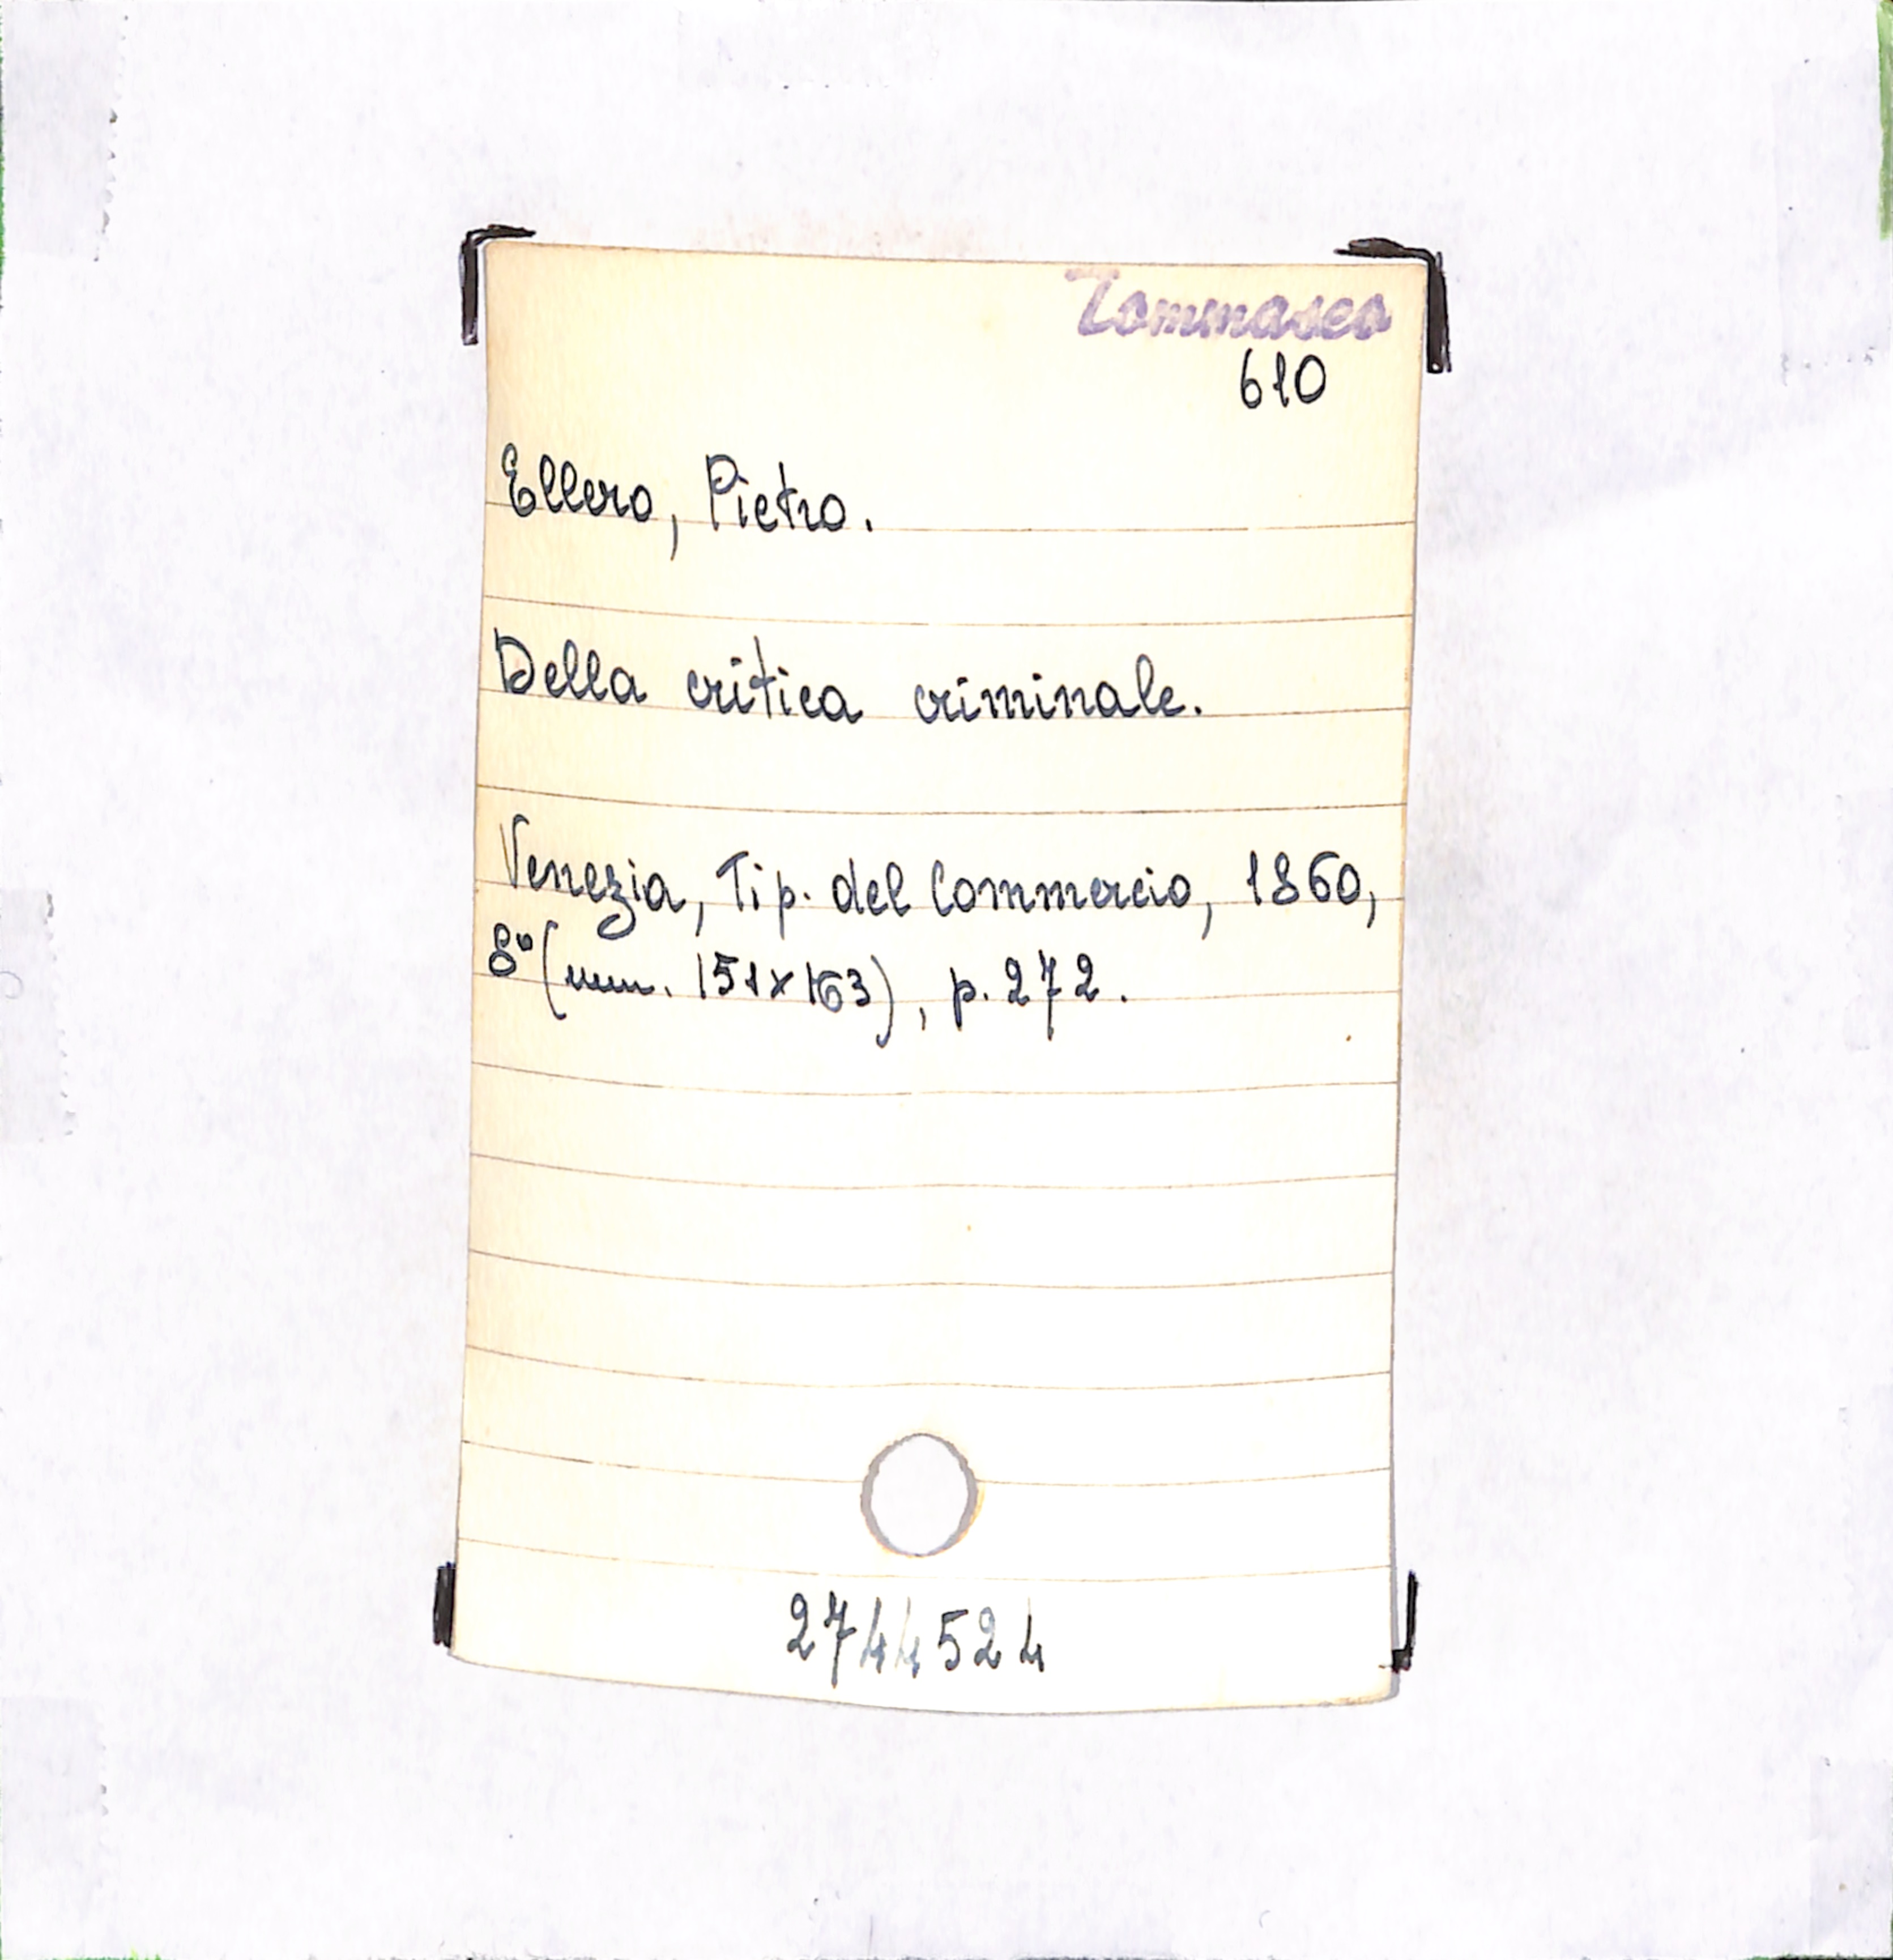 Tommaseo
610
Ellero, Pietro.
Della critica criminale.
Venezia, Tip. del Commercio, 1860,
8° (mm. 151x163), p. 272.
2744524